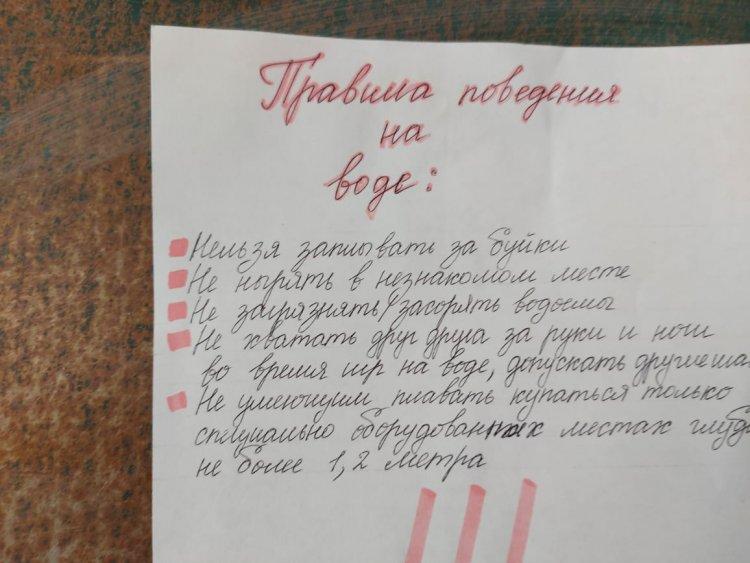 Правила поведения
на
воде:
Нельзя заплывать за буйки
Не нырять в незнакомом месте
Не загрязнять/засорять водоемы
Не хватать друг друга за руки и ноги
во время игр на воде, допускать
Не умеющим плавать купаться только
специально оборудованных местах
не более 1,2 метра